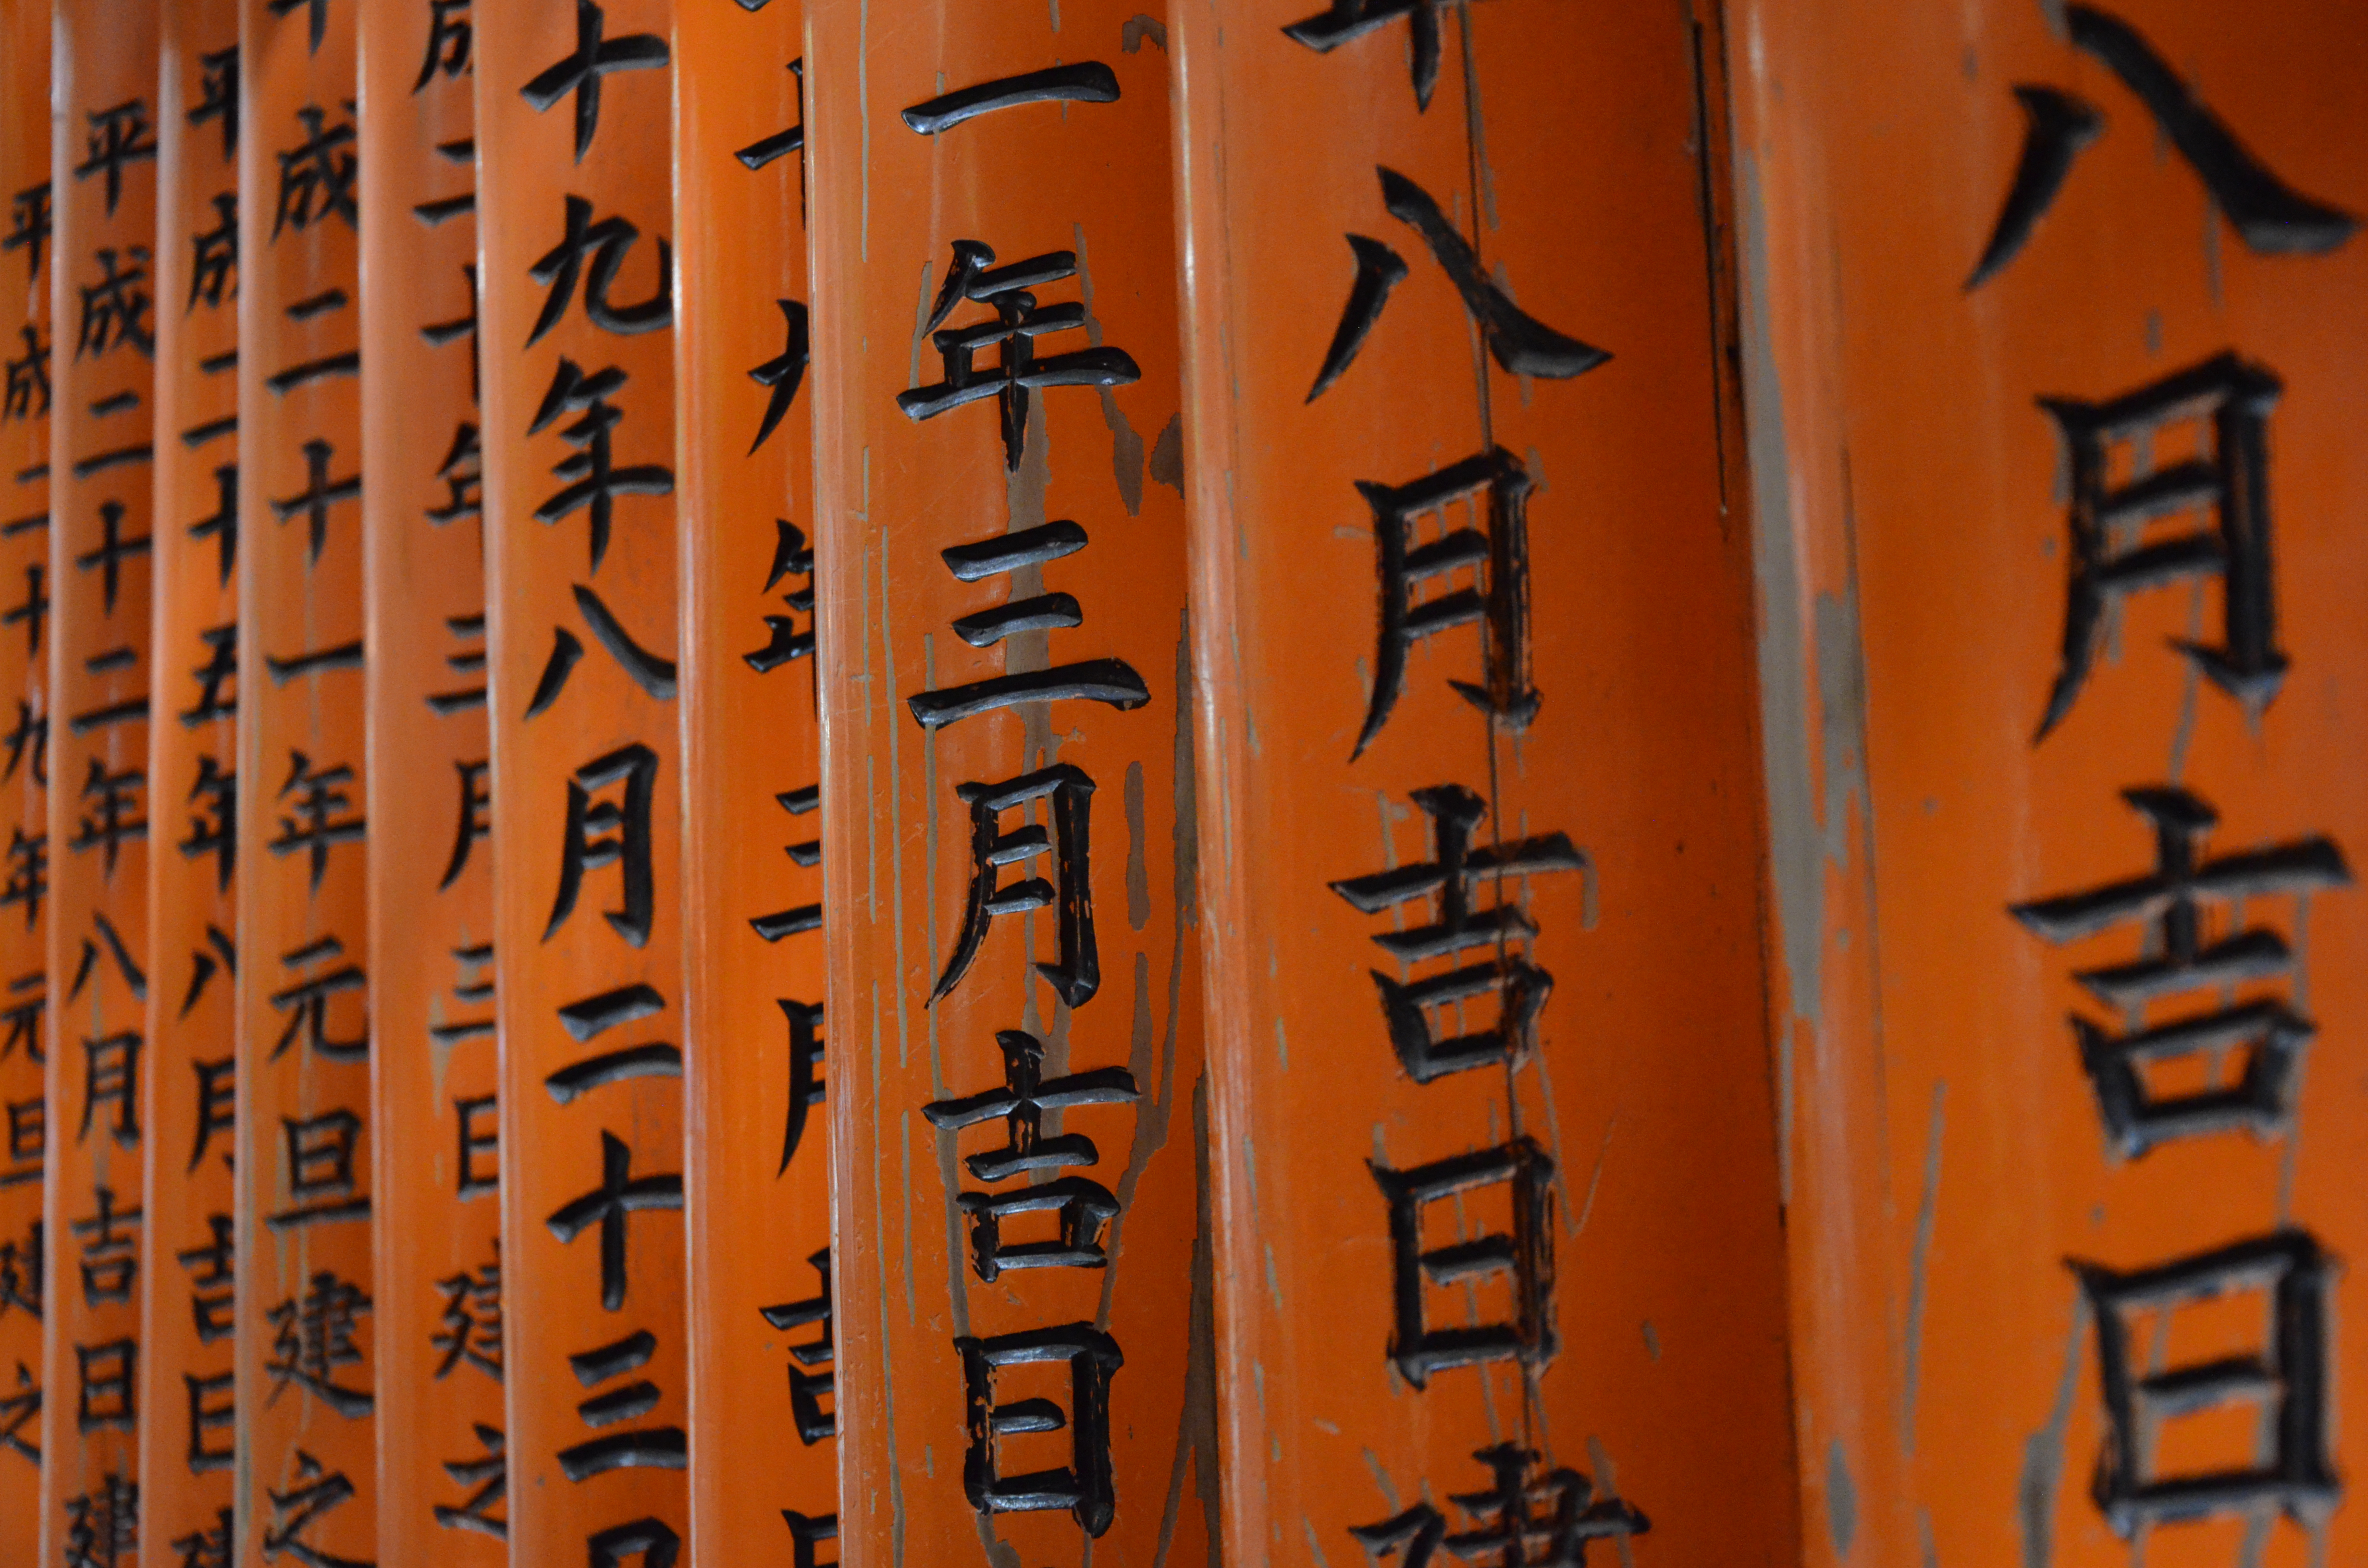 八月吉日
年八月吉日建
一年三月吉日
十九年三月吉日
十九年八月二十三日
成二十年三月三日建之
平成二十一年元旦建之
平成二十五年八月吉日建
平成二十二年八月吉日建
平成二十九年元旦建之